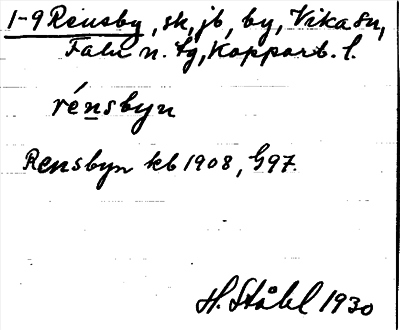 1-9 Rensby, sk, jb, by, Vika sn,
Falu n. tg, Kopparb. l.
rénsbyn
Rensbyn kb 1908, G97.
H. Ståhl 1930